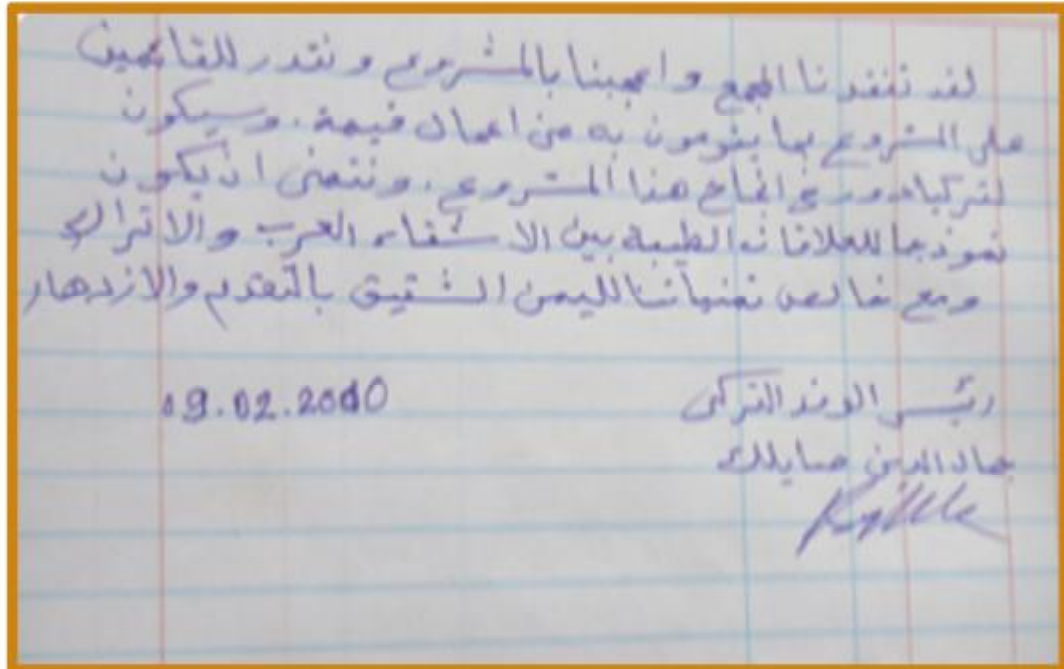 لقد تفقدنا المجمع واعجبنا بالمشروع ونقدر للقائمين
على المشروع بما يقومون به من اعمال قيمة. وسيكون
لتركيا دور في انجاح هذا المشروع. ونتمنى ان يكون
نموذجا للعلاقات الطيبة بين الاشقاء العرب والاتراك
ومع خالص تمنياتنا لليمن الشقيق بالتقدم والازدهار
رئيس الوفد التركي
09.02.2010
جمال الدين صايلك